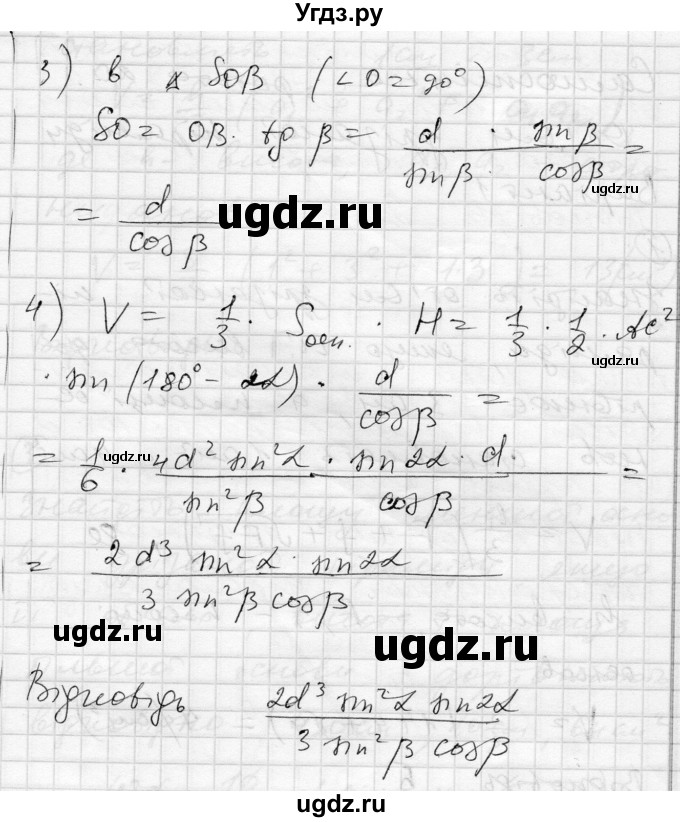 Угдз.ру
3) в △ SOB (∠O = 90°)
SO = OB · tg β = d/sin β · sin β/cos β =
ugdz.ru
= d/cos β
ugdz.ru
4) V = 1/3 · Sосн. · H = 1/3 · 1/2 · AC²
ugdz.ru
· sin (180° - 2α) · d/cos β =
= 1/6 · 4d² sin²α · sin 2α · d · / sin²β cos β =
ugdz.ru
= 2d³ sin²α · sin 2α / 3 sin²β cos β
ugdz.ru
ugdz.ru
Відповідь 2d³ sin²α sin 2α / 3 sin²β cos β
ugdz.ru
ugdz.ru